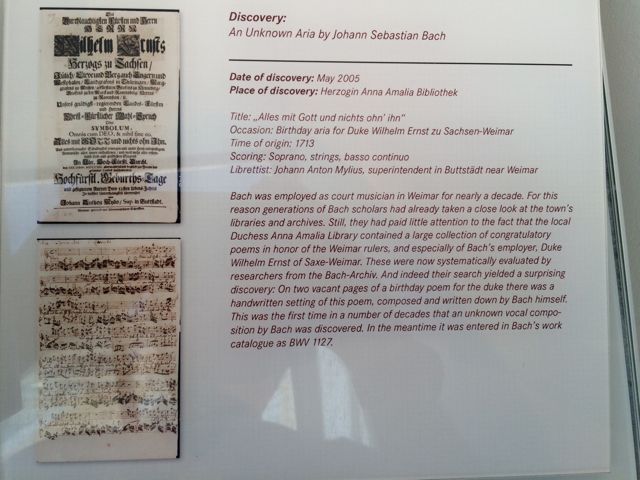 HERRN
Wilhelm Ernsts
Herzogs zu Sachsen/
SYMBOLUM:
Omnia cum DEO, & nihil sine eo.
Alles mit GOTT und nichts ohn Ihn.
Discovery:
An Unknown Aria by Johann Sebastian Bach
Date of discovery: May 2005
Place of discovery: Herzogin Anna Amalia Bibliothek
Title: „Alles mit Gott und nichts ohn' ihn“
Occasion: Birthday aria for Duke Wilhelm Ernst zu Sachsen-Weimar
Time of origin: 1713
Scoring: Soprano, strings, basso continuo
Librettist: Johann Anton Mylius, superintendent in Buttstädt near Weimar
Bach was employed as court musician in Weimar for nearly a decade. For this
reason generations of Bach scholars had already taken a close look at the town's
libraries and archives. Still, they had paid little attention to the fact that the local
Duchess Anna Amalia Library contained a large collection of congratulatory
poems in honor of the Weimar rulers, and especially of Bach's employer, Duke
Wilhelm Ernst of Saxe-Weimar. These were now systematically evaluated by
researchers from the Bach-Archiv. And indeed their search yielded a surprising
discovery: On two vacant pages of a birthday poem for the duke there was a
handwritten setting of this poem, composed and written down by Bach himself.
This was the first time in a number of decades that an unknown vocal compo-
sition by Bach was discovered. In the meantime it was entered in Bach's work
catalogue as BWV 1127.